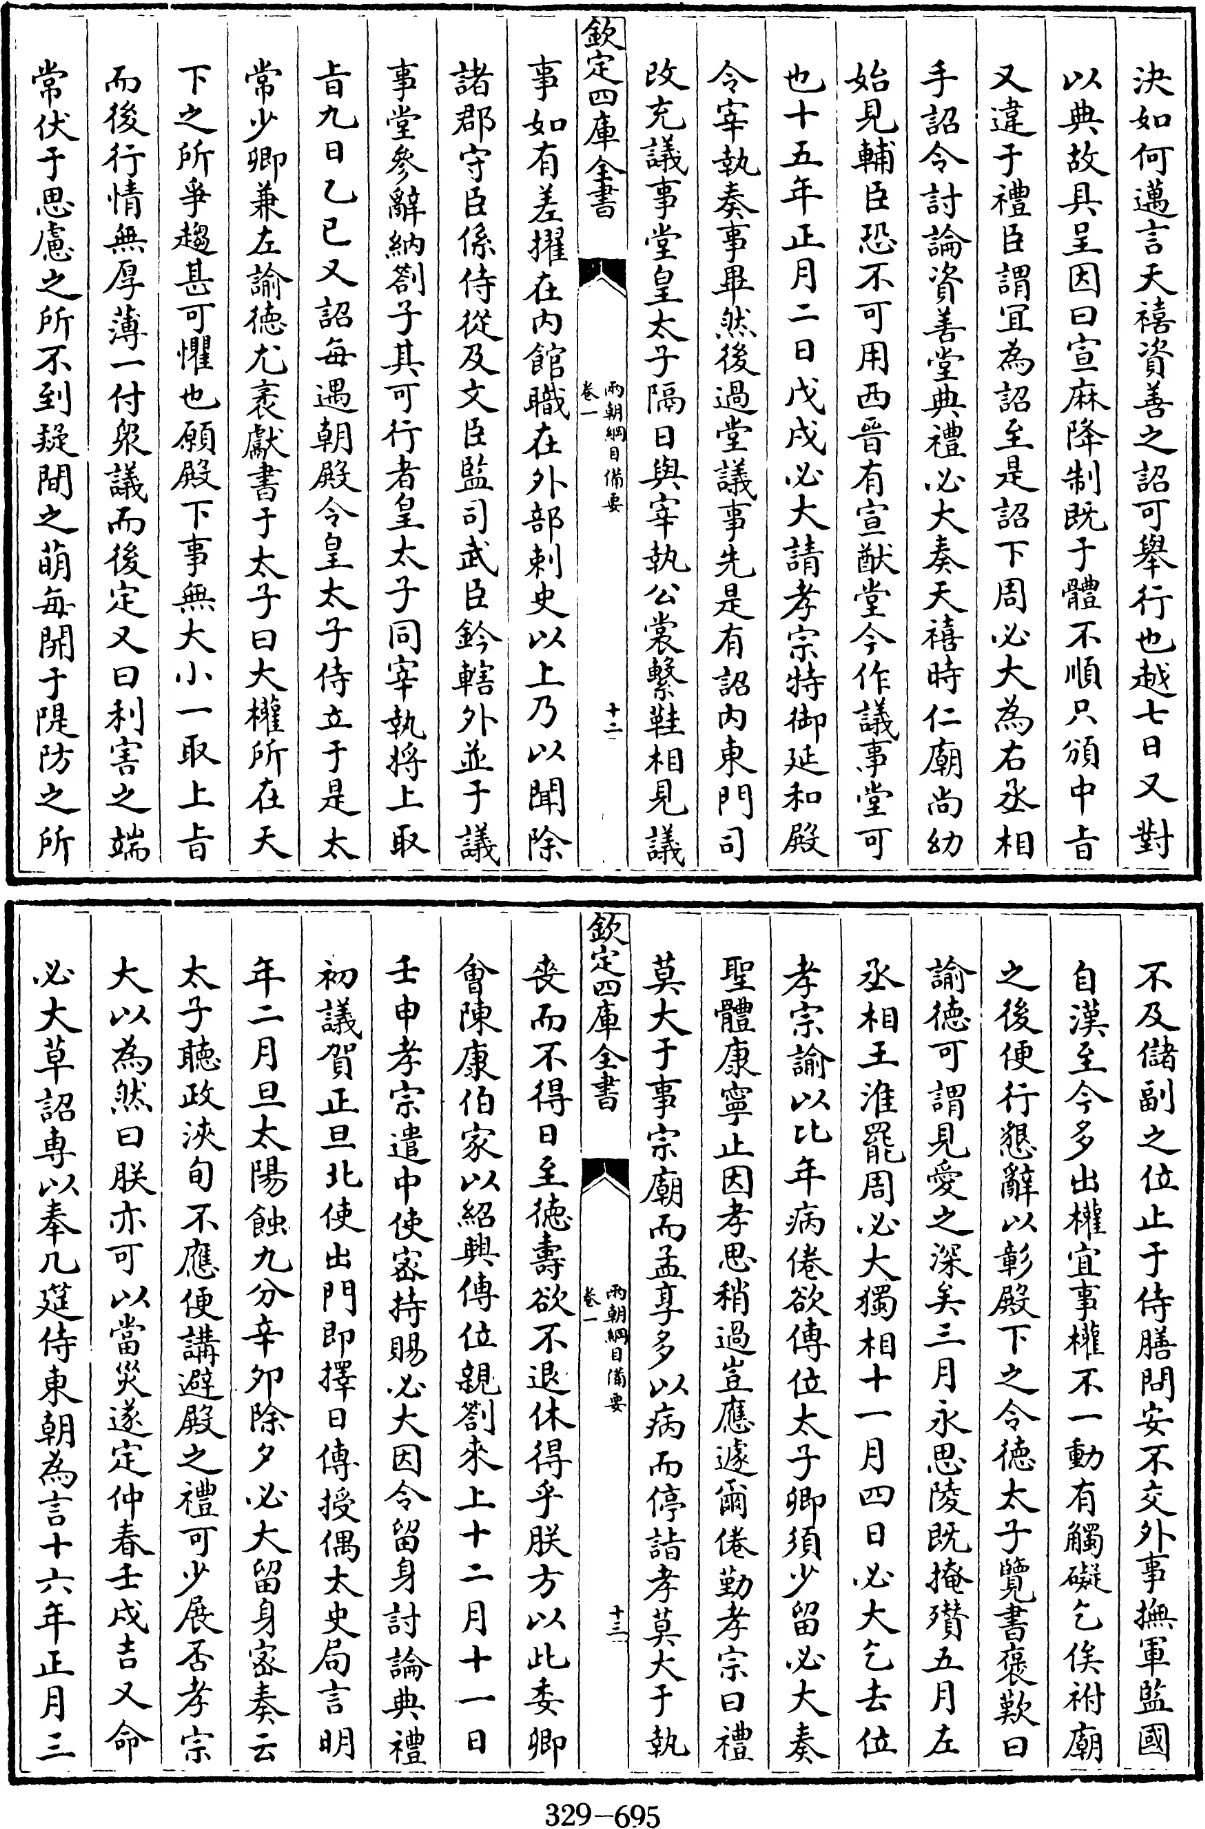 決如何邁言天禧資善之詔可舉行也越七日又對
以典故具呈因曰宣麻降制既于體不順只頒中㫖
又違于禮臣謂宜為詔至是詔下周必大為右丞相
手詔令討論資善堂典禮必大奏天禧時仁廟尚幼
始見輔臣恐不可用西晉有宣猷堂今作議事堂可
也十五年正月二日戊戌必大請孝宗特御延和殿
令宰執奏事畢然後過堂議事先是有詔内東門司
改充議事堂皇太子隔日與宰執公裳繫鞋相見議
欽定四庫全書
兩朝綱目備要
卷一
十二
事如有差擢在内館職在外部刺史以上乃以聞除
諸郡守臣係侍從及文臣監司武臣鈐轄外並于議
事堂參辭納劄子其可行者皇太子同宰執將上取
㫖九日乙巳又詔每遇朝殿令皇太子侍立于是太
常少卿兼左諭徳尤袤獻書于太子曰大權所在天
下之所爭趨甚可懼也願殿下事無大小一取上㫖
而後行情無厚薄一付衆議而後定又曰利害之端
常伏于思慮之所不到疑間之萌每開于隄防之所
不及儲副之位止于侍膳問安不交外事撫軍監國
自漢至今多出權宜事權不一動有觸礙乞俟祔廟
之後便行懇辭以彰殿下之令徳太子覽書褒歎曰
諭徳可謂見愛之深矣三月永思陵既掩殯五月左
丞相王淮罷周必大獨相十一月四日必大乞去位
孝宗諭以比年病倦欲傳位太子卿須少留必大奏
聖體康寧止因孝思稍過豈應遽爾倦勤孝宗曰禮
莫大于事宗廟而孟享多以病而停詣孝莫大于執
欽定四庫全書
兩朝綱目備要
卷一
十三
喪而不得日至徳壽欲不退休得乎朕方以此委卿
㑹陳康伯家以紹興傳位親劄來上十二月十一日
壬申孝宗遣中使宻持賜必大因令留身討論典禮
初議賀正旦北使出門即擇日傳授偶太史局言明
年二月旦太陽蝕九分辛卯除夕必大留身宻奏云
太子聽政浹旬不應便講避殿之禮可少展否孝宗
大以為然曰朕亦可以當災遂定仲春壬戌吉又命
必大草詔専以奉几筵侍東朝為言十六年正月三
329-695